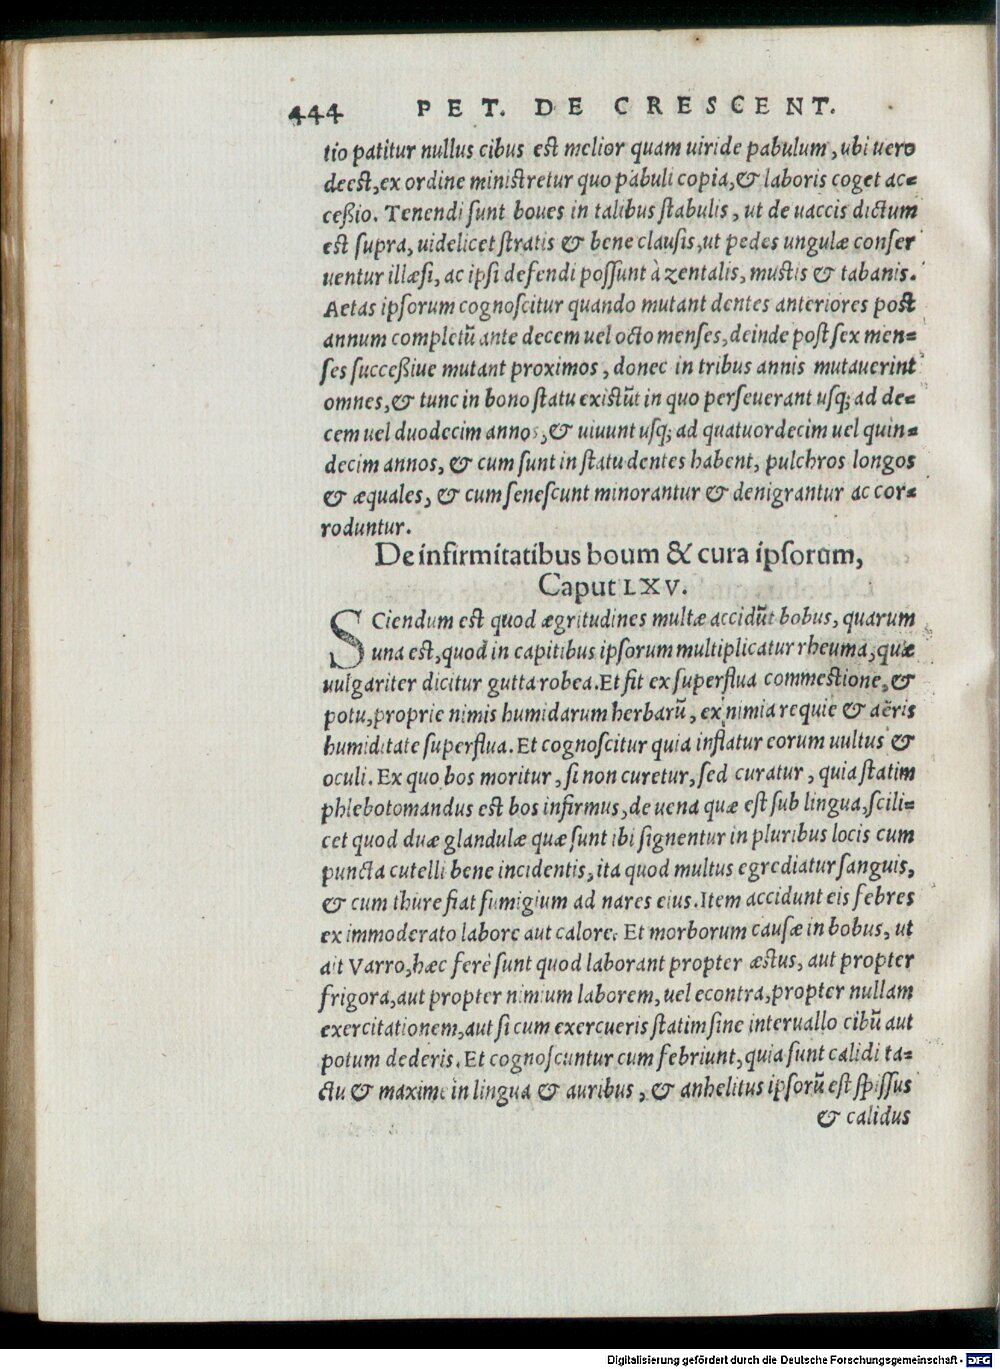 444 PET. DE CRESCENT.
tio patitur nullus cibus est melior quam uiride pabulum, ubi uero
deest, ex ordine ministretur quo pabuli copia, & laboris coget ac=
ceßio. Tenendi sunt boues in talibus stabulis, ut de uaccis dictum
est supra, uidelicet stratis & bene clausis, ut pedes ungulæ conser
uentur illæsi, ac ipsi defendi possunt à zentalis, mustis & tabanis.
Aetas ipsorum cognoscitur quando mutant dentes anteriores post
annum completũ ante decem uel octo menses, deinde post sex men=
ses succeßiue mutant proximos, donec in tribus annis mutauerint
omnes, & tunc in bono statu existũt in quo perseuerant usq; ad de=
cem uel duodecim annos, & uiuunt usq; ad quatuordecim uel quin=
decim annos, & cum sunt in statu dentes habent, pulchros longos
& æquales, & cum senescunt minorantur & denigrantur ac cor=
roduntur.
De infirmitatibus boum & cura ipsorum,
Caput LXV.
SCiendum est quod ægritudines multæ accidũt bobus, quarum
una est, quod in capitibus ipsorum multiplicatur rheuma, quæ
uulgariter dicitur gutta robea. Et fit ex superflua commestione, &
potu, proprie nimis humidarum herbarũ, ex nimia requie & aëris
humiditate superflua. Et cognoscitur quia inflatur eorum uultus &
oculi. Ex quo bos moritur, si non curetur, sed curatur, quia statim
phlebotomandus est bos infirmus, de uena quæ est sub lingua, scili=
cet quod duæ glandulæ quæ sunt ibi signentur in pluribus locis cum
puncta cutelli bene incidentis, ita quod multus egrediatur sanguis,
& cum thure fiat fumigium ad nares eius. Item accidunt eis febres
ex immoderato labore aut calore. Et morborum causæ in bobus, ut
ait Varro, hæc ferè sunt quod laborant propter æstus, aut propter
frigora, aut propter nimium laborem, uel econtra, propter nullam
exercitationem, aut si cum exercueris statim sine interuallo cibũ aut
potum dederis. Et cognoscuntur cum febriunt, quia sunt calidi ta=
ctu & maxime in lingua & auribus, & anhelitus ipsorũ est spissus
& calidus
Digitalisierung gefördert durch die Deutsche Forschungsgemeinschaft - DFG